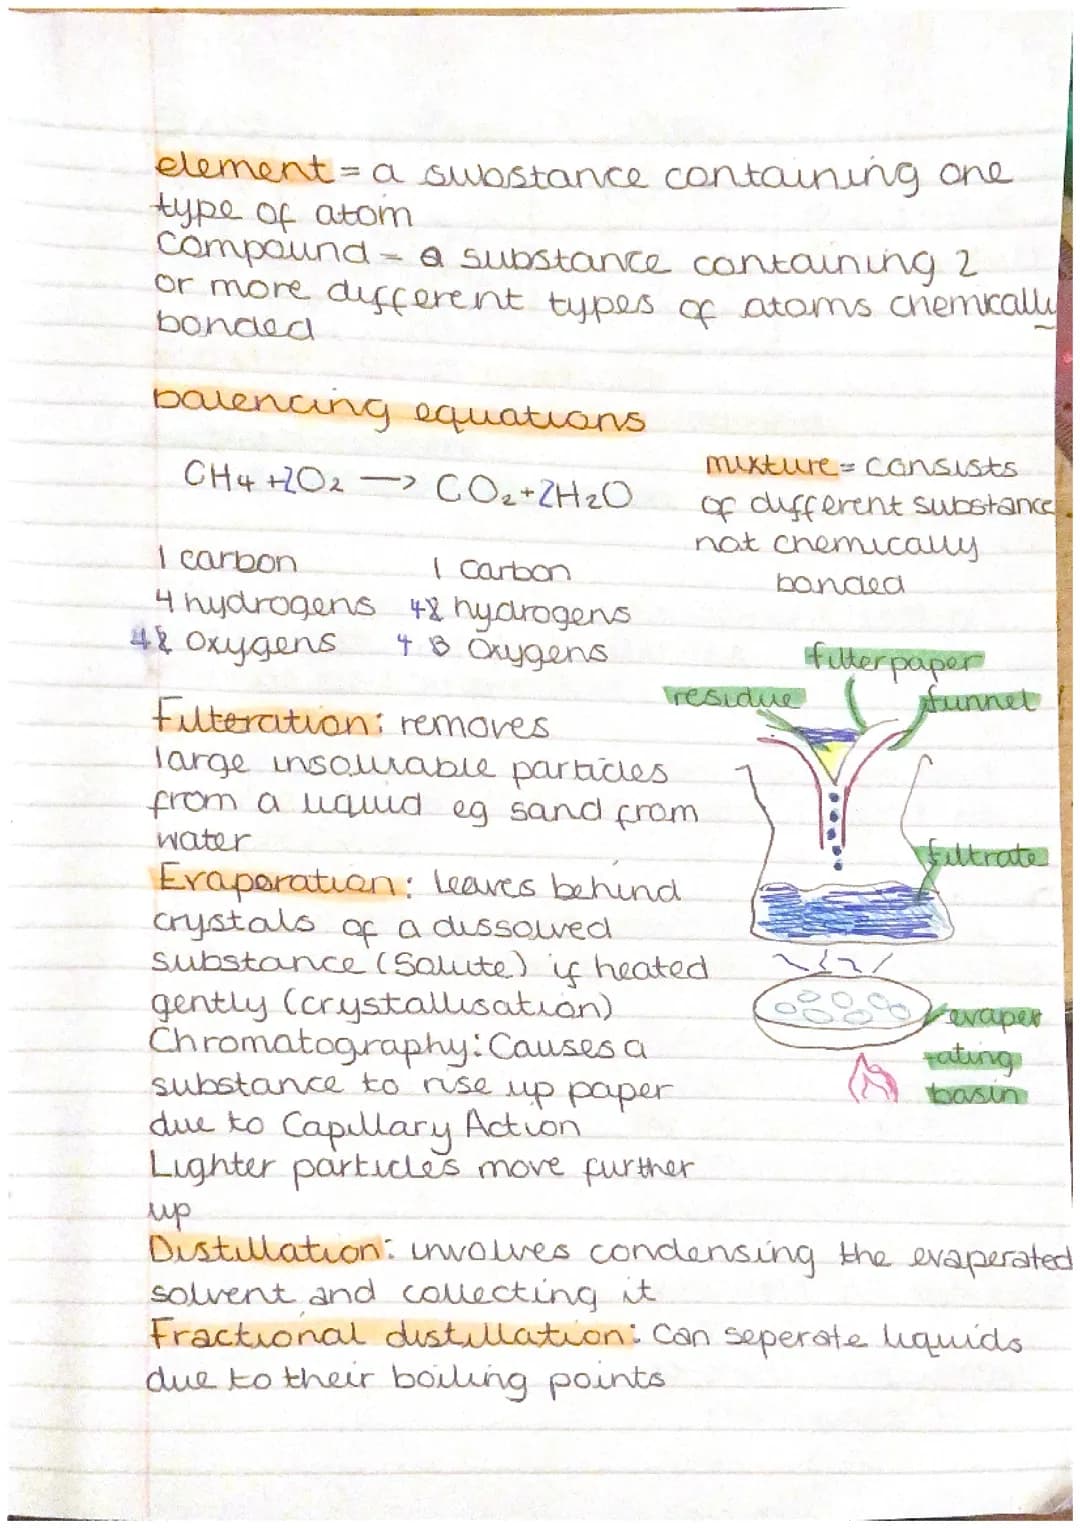 element = a substance containing one
type of atom
Compound = a substance containing 2
or more different types of atoms chemically
bonded
balencing equations
CH4 + 2O2 → CO2 + 2H2O
mixture = consists
of different substance
not chemically
bonded
1 carbon
1 carbon
4 hydrogens
4 2 hydrogens
4 2 Oxygens
4 3 Oxygens
filter paper
residue
funnel
Filteration: removes
large insolurable particles
from a liquid eg sand from
water
filtrate
Evaporation: leaves behind
crystals of a dissolved
substance (Solute) if heated
gently (crystallisation)
evaper
ating
basin
Chromatography: Causes a
substance to rise up paper
due to Capillary Action
Lighter particles move further
up
Distillation: involves condensing the evaperated
solvent and collecting it
Fractional distillation: Can seperate liquids
due to their boiling points